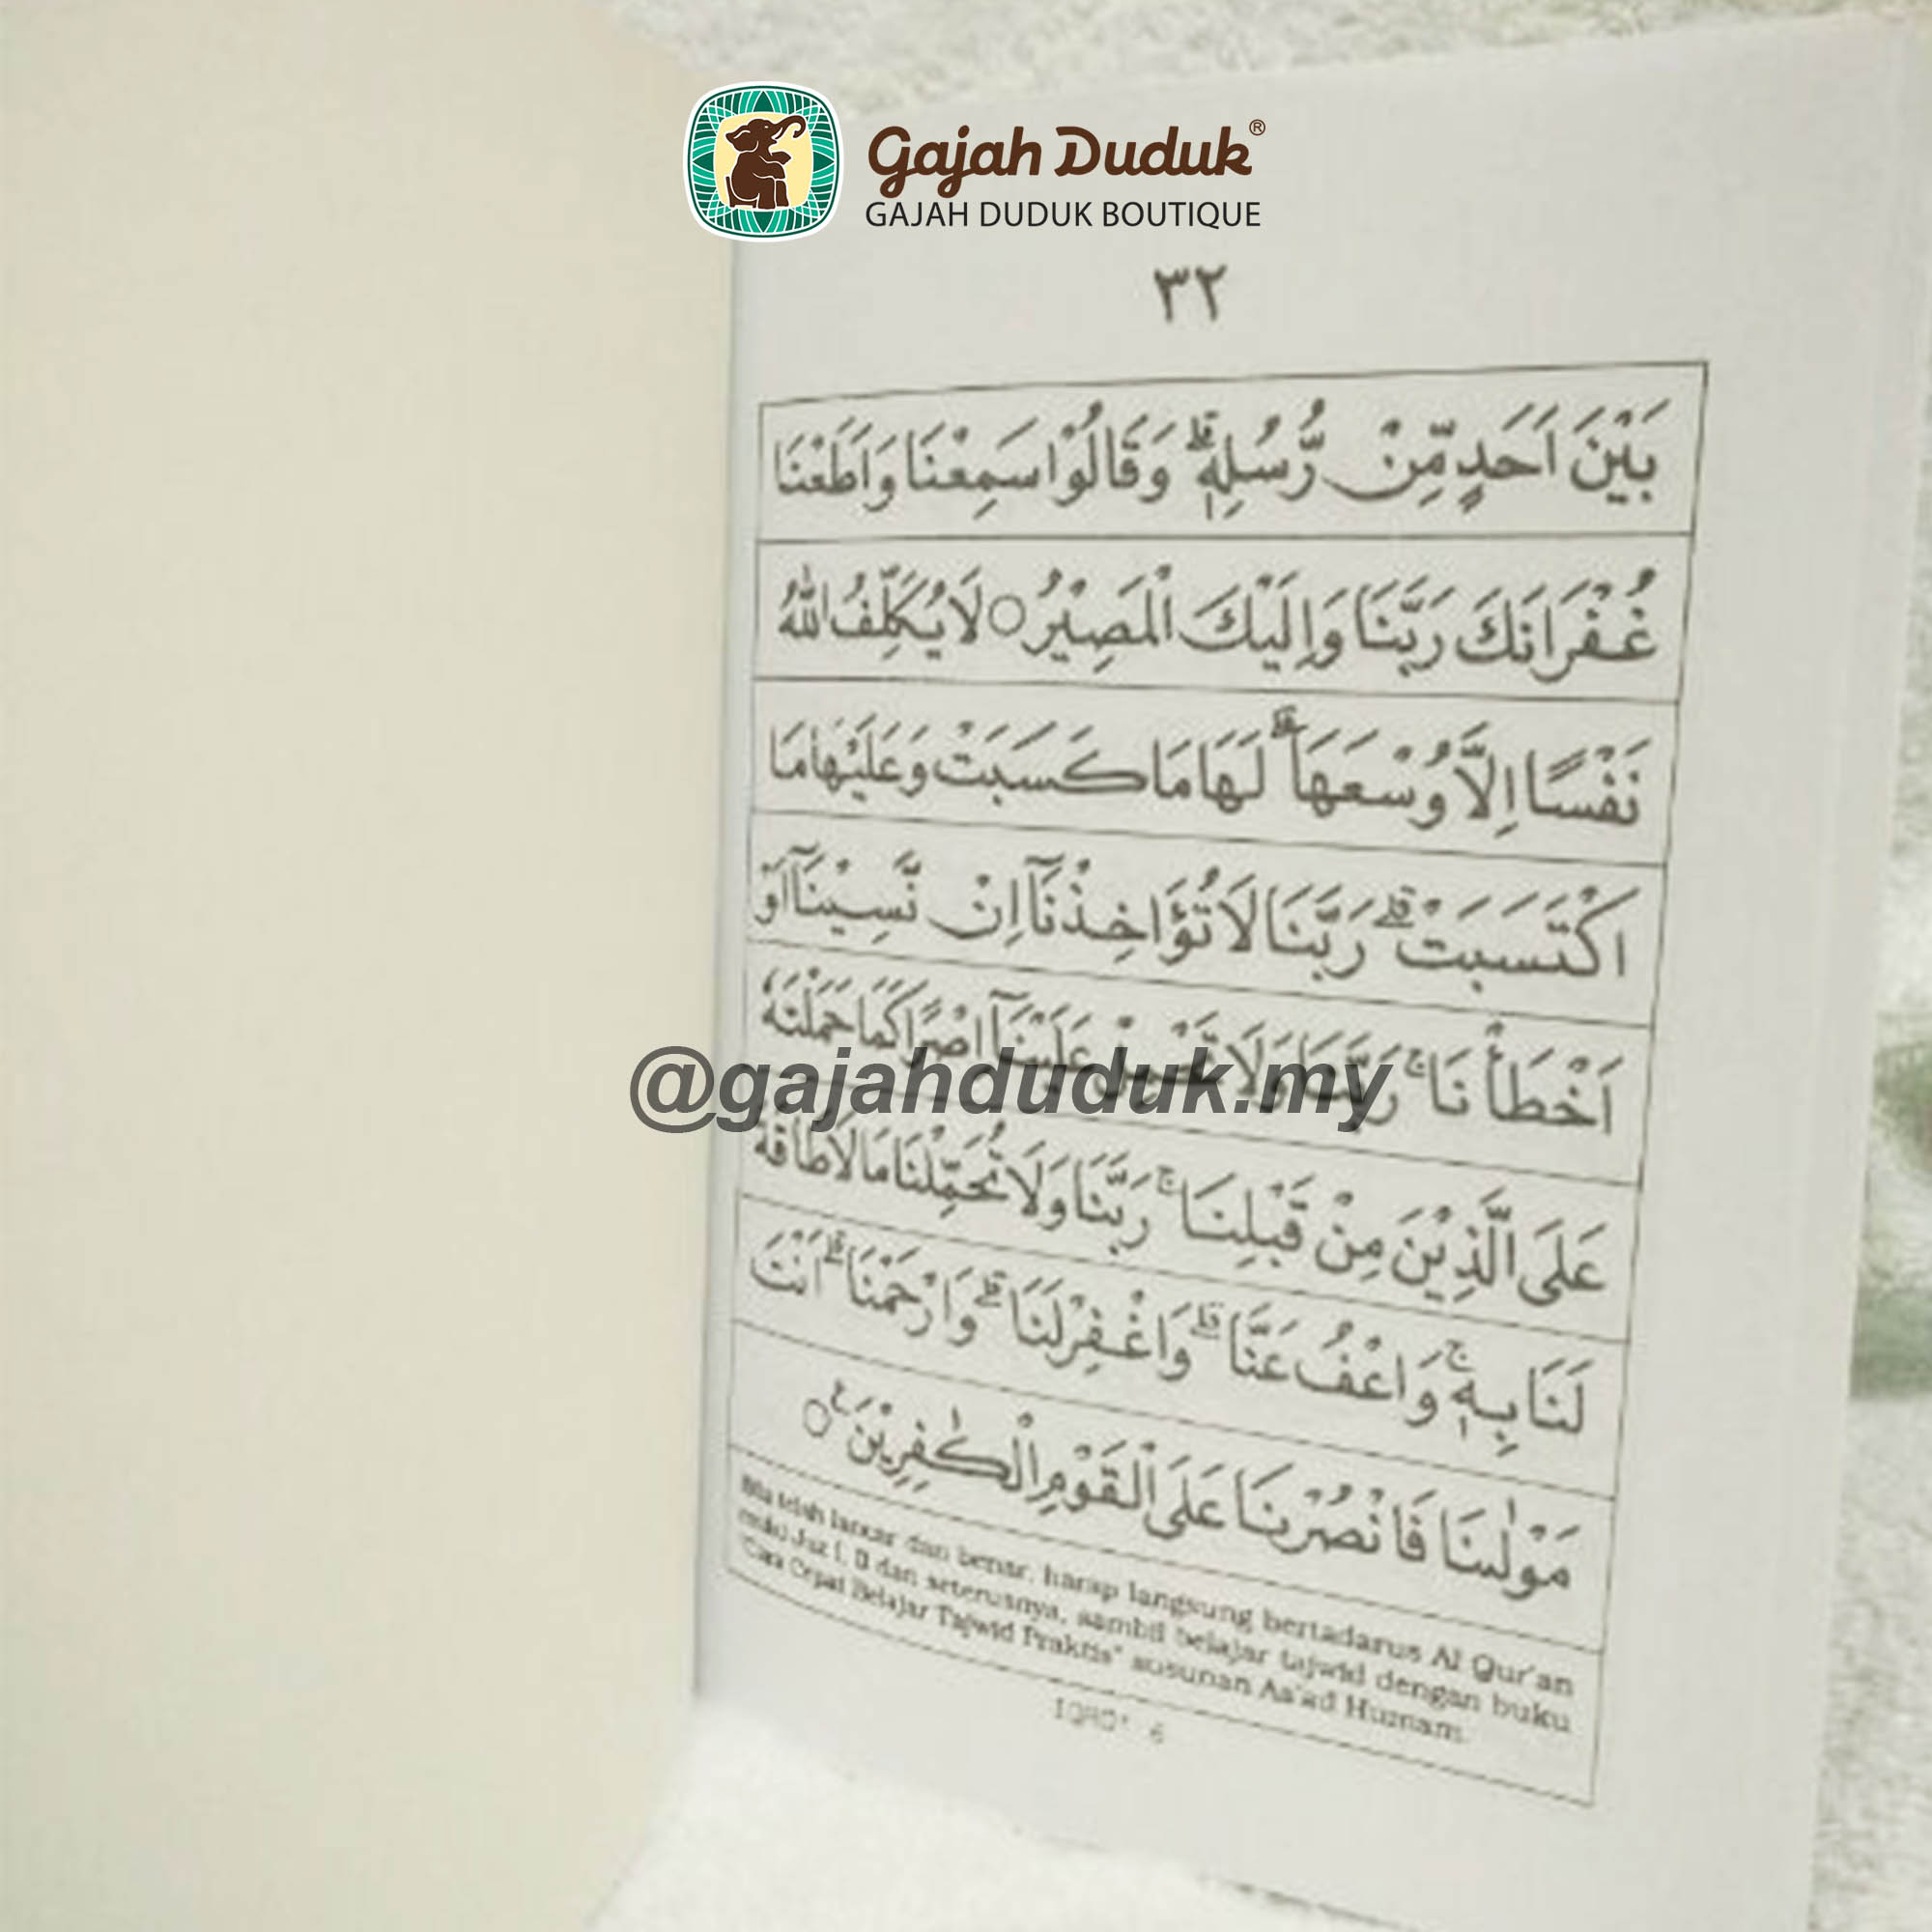 Gajah Duduk®
GAJAH DUDUK BOUTIQUE
٣٢
بَيْنَ اَحَدٍ مِّنْ رُّسُلِهٖ ۗ وَقَالُوْا سَمِعْنَا وَاَطَعْنَا
غُفْرَانَكَ رَبَّنَا وَاِلَيْكَ الْمَصِيْرُ ○ لَا يُكَلِّفُ اللّٰهُ
نَفْسًا اِلَّا وُسْعَهَا ۗ لَهَا مَا كَسَبَتْ وَعَلَيْهَا مَا
اكْتَسَبَتْ ۗ رَبَّنَا لَا تُؤَاخِذْنَآ اِنْ نَّسِيْنَآ اَوْ
اَخْطَأْنَا ۚ رَبَّنَا وَلَا تَحْمِلْ عَلَيْنَآ اِصْرًا كَمَا حَمَلْتَهٗ
@gajahduduk.my
عَلَى الَّذِيْنَ مِنْ قَبْلِنَا ۚ رَبَّنَا وَلَا تُحَمِّلْنَا مَا لَا طَاقَةَ
لَنَا بِهٖ ۚ وَاعْفُ عَنَّا ۗ وَاغْفِرْ لَنَا ۗ وَارْحَمْنَا ۗ اَنْتَ
مَوْلٰىنَا فَانْصُرْنَا عَلَى الْقَوْمِ الْكٰفِرِيْنَ ۚ ○
Bila telah lancar dan benar, harap langsung bertadarus Al Qur'an
mulai Juz I, II dan seterusnya, sambil belajar tajwid dengan buku
"Cara Cepat Belajar Tajwid Praktis" susunan As'ad Humam.
IQRO' 6